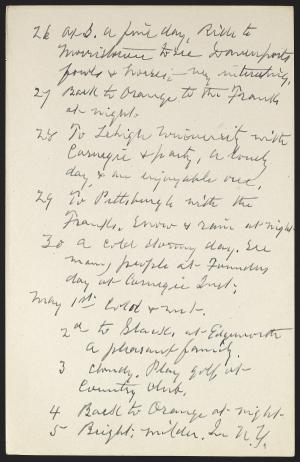 26 at D. A fine day, Ride to
Morristown to see Davenports
fowls & horses; very interesting.
27 Back to Orange to the Franks
at night.
28 To Lehigh University with
Carnegie & party, a lovely
day, & an enjoyable one.
29 To Pittsburgh with the
Franks. Snow & rain at night.
30 A cold stormy day. See
many people at Founders
day at Carnegie Inst.
May 1st Cold & wet.
2d to Slacks, at Edgeworth
a pleasant family.
3 cloudy. Play golf at
Country club.
4 Back to Orange at night.
5 Bright; milder. In N.Y.